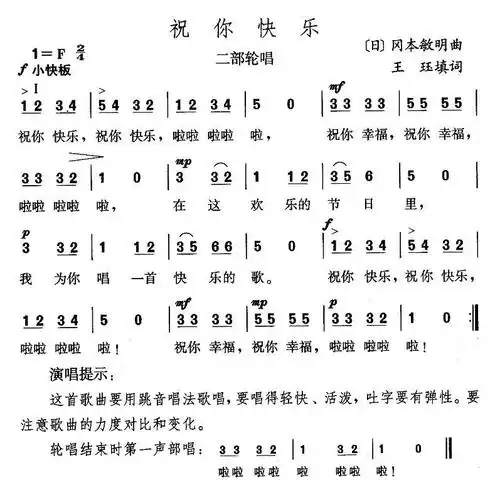 祝你快乐
1=F 2/4 二部轮唱 〔日〕冈本敏明曲
f 小快板 王 珏填词
> I > mf
1 2 3 4 | 5 4 3 2 | 1 2 3 4 | 5 0 | 3 3 3 3 | 5 5 3 3 |
祝你 快乐，祝你 快乐，啦啦 啦啦 啦， 祝你 幸福，祝你 幸福，
mp
3 3 3 2 | 1 0 | 3 3 2 | 1 1 2 | 3 5 6 | 5 0 |
啦啦 啦啦 啦， 在 这 欢 乐的 节 日 里，
p f > >
3 3 2 | 1 1 2 | 3 5 6 6 | 5 0 | 1 2 3 4 | 5 4 3 2 |
我 为你 唱 一首 快 乐的 歌。 祝你 快乐，祝你 快乐，
mf mp p
1 2 3 4 | 5 0 | 3 3 3 3 | 5 5 5 5 | 3 3 3 2 | 1 0 :‖
啦啦 啦啦 啦！ 祝你 幸福，祝你 幸福， 啦啦 啦啦 啦！
演唱提示：
这首歌曲要用跳音唱法歌唱，要唱得轻快、活泼，吐字要有弹性。要
注意歌曲的力度对比和变化。
轮唱结束时第一声部唱： 3 3 3 2 | 1 0 1 | 3 3 2 | 1 0 ‖
啦啦 啦啦 啦 啦 啦 啦啦 啦！